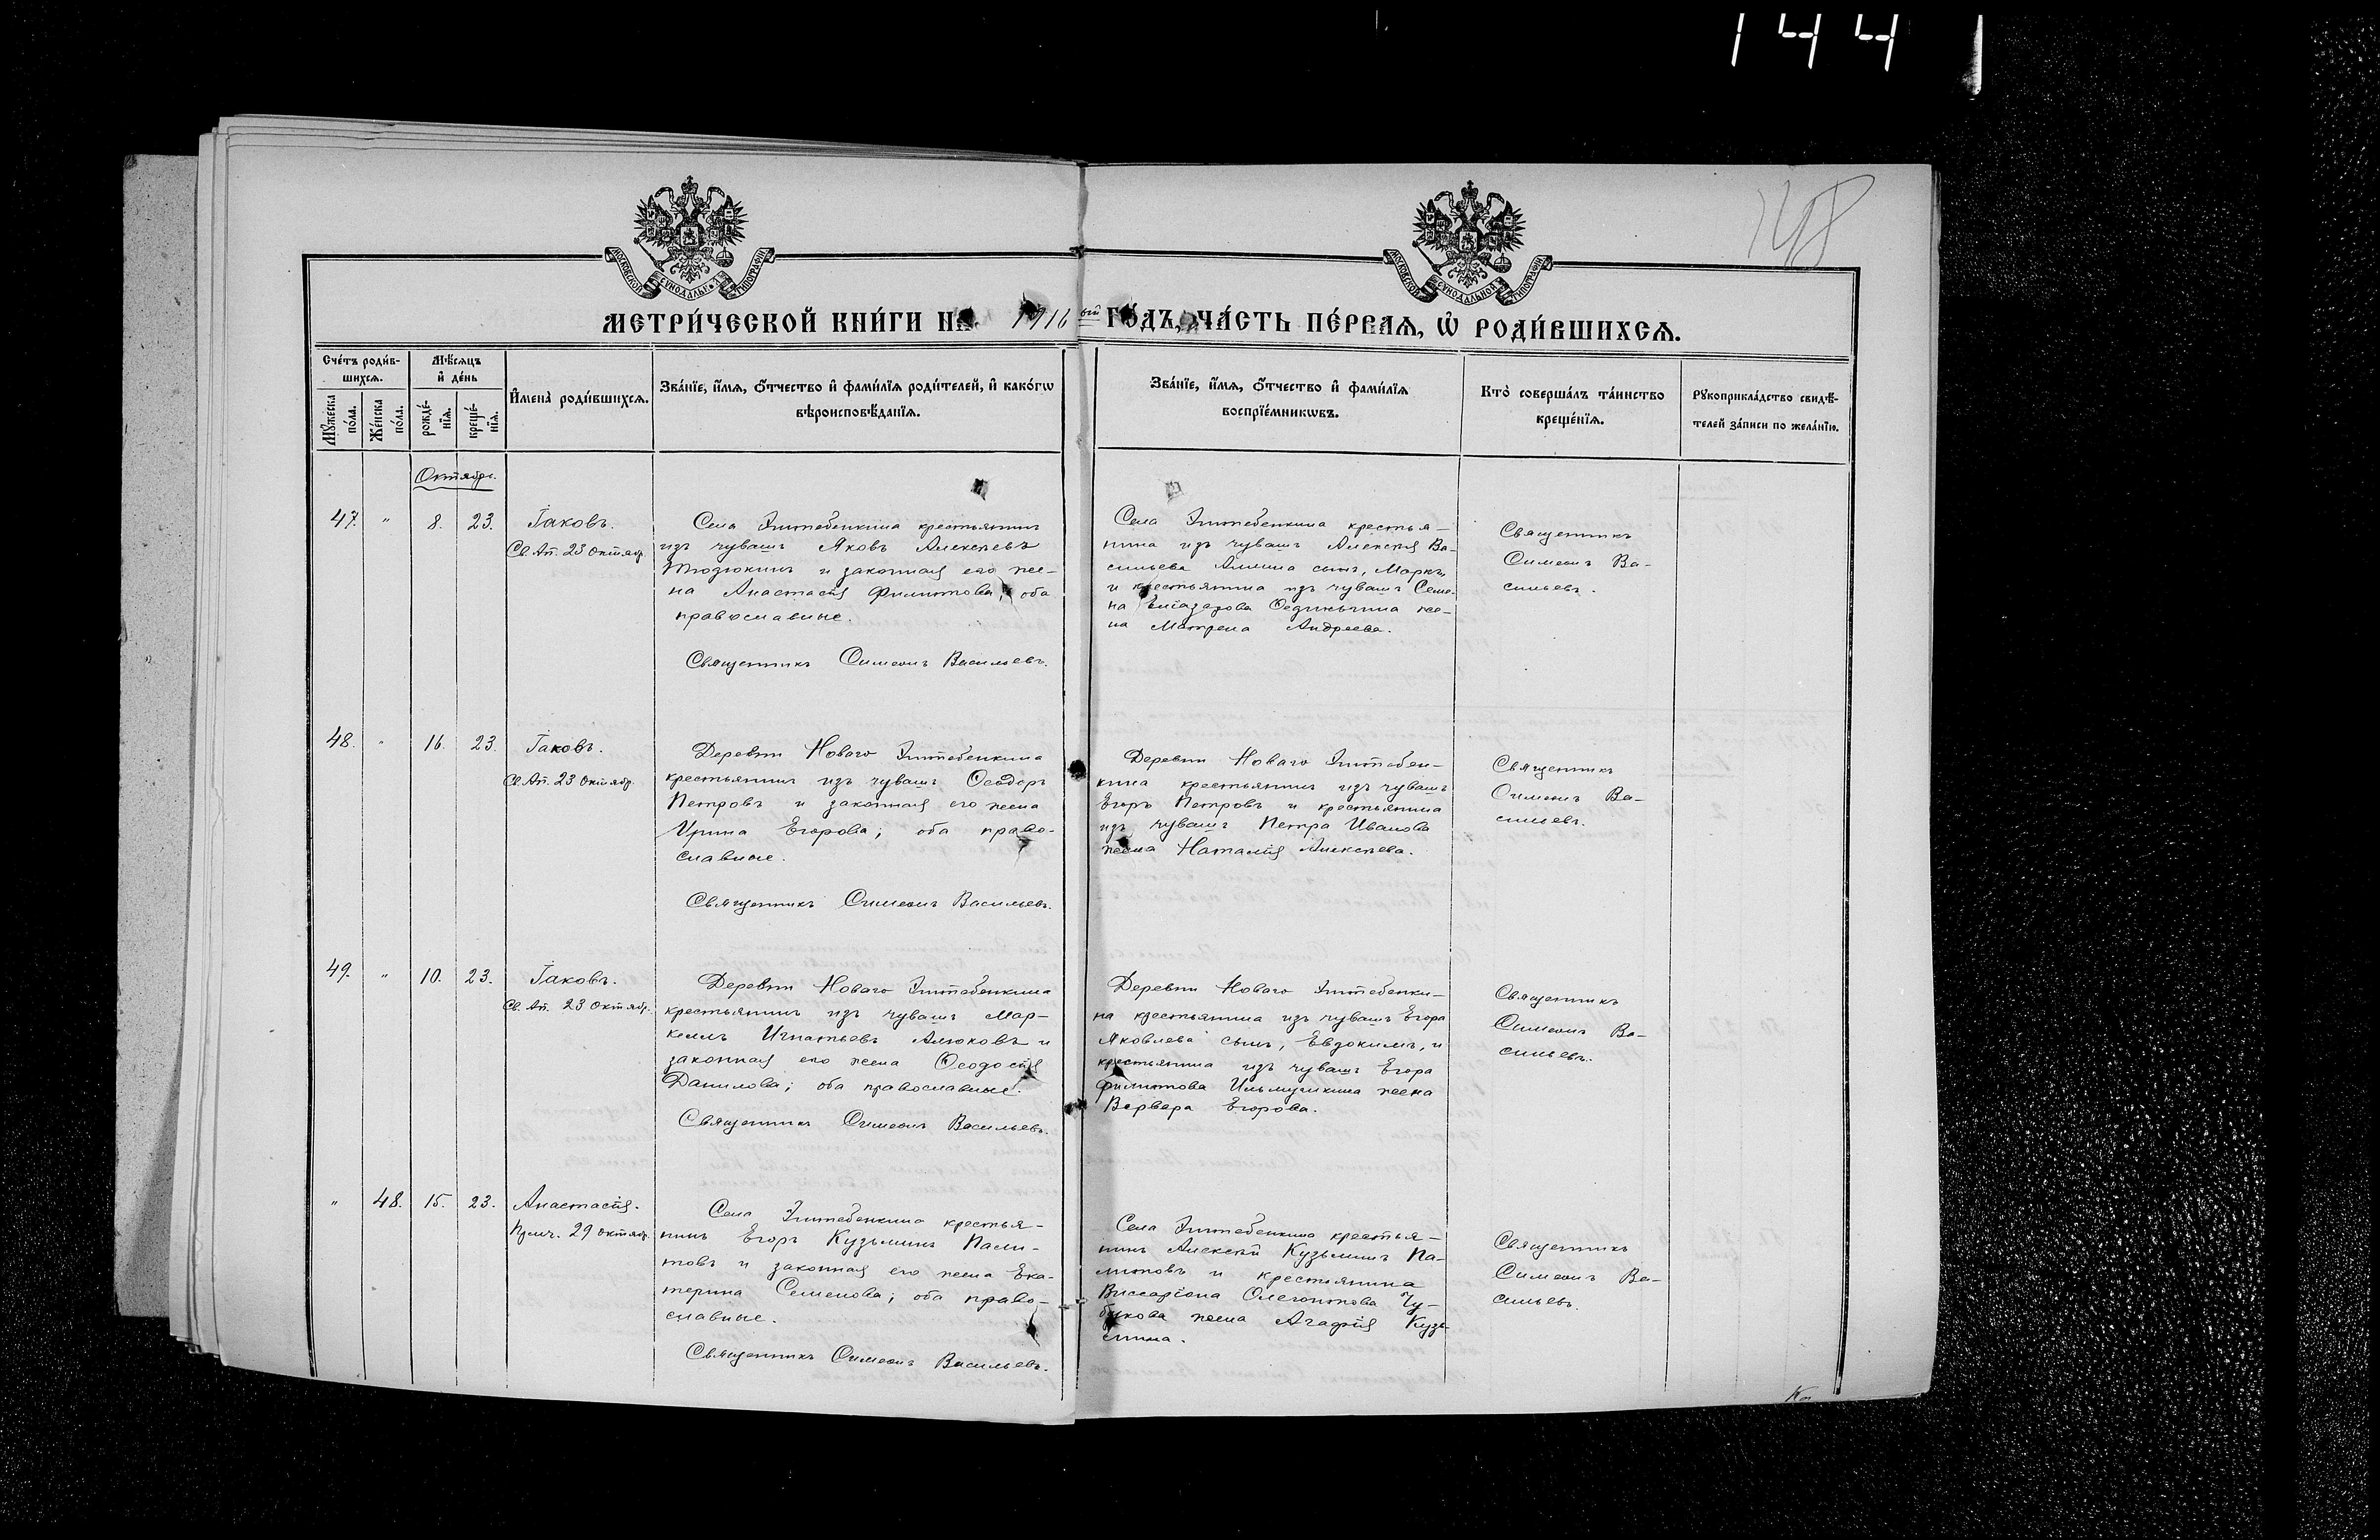 144
148
МОСКОВСКОЙ СУНОДАЛЬНОЙ ТИПОГРАФІИ
МОСКОВСКОЙ СУНОДАЛЬНОЙ ТИПОГРАФІИ
МЕТРИ́ЧЕСКОЙ КНИ́ГИ НА 1916ый ГО́ДЪ, ЧА́СТЬ ПЕ́РВАѦ, Ѽ РОДИ́ВШИХСѦ.
Сче́тъ роди́в-
шихсѧ.
Мѣ́сѧцъ
и҆ де́нь
Мꙋ́жеска
по́ла.
Же́нска
по́ла.
рожде́-
нїѧ.
креще́-
нїѧ.
И҆мена̀ роди́вшихсѧ.
Зва́нїе, и҆́мѧ, ѻ҆́тчество и҆ фами́лїѧ роди́телей, и҆ како́гѡ
вѣроисповѣ́данїѧ.
Зва́нїе, и҆́мѧ, ѻ҆́тчество и҆ фами́лїѧ
воспрїе́мникѡвъ.
Кто̀ соверша́лъ та́инство
креще́нїѧ.
Рꙋкоприкла́дство свидѣ́-
телей за́писи по жела́нїю.
Октябрь.
47. " 8. 23. Іаковъ.
Св. Ап. 23 октяб.
Села Эштебенкина крестьянинъ
изъ чувашъ Яковъ Алексѣевъ
Тюзюкинъ и законная его же-
на Анастасія Филиппова; оба
православные.
Священникъ Симеонъ Васильевъ.
Села Эштебенкина крестья-
нина изъ чувашъ Алексѣя Ва-
сильева сынъ, Маркъ,
и крестьянина изъ чувашъ Семе-
на Елиазарова же-
на Матрена Андреева.
Священникъ
Симеонъ Ва-
сильевъ.
48. " 16. 23. Іаковъ.
Св. Ап. 23 октяб.
Деревни Новаго Эштебенкина
крестьянинъ изъ чувашъ Ѳеодоръ
Петровъ и законная его жена
Ирина Егорова; оба право-
славные.
Священникъ Симеонъ Васильевъ.
Деревни Новаго Эштебен-
кина крестьянинъ изъ чувашъ
Егоръ Петровъ и крестьянина
изъ чувашъ Петра Иванова
жена Наталія Алексѣева.
Священникъ
Симеонъ Ва-
сильевъ.
49. " 10. 23. Іаковъ.
Св. Ап. 23 октяб.
Деревни Новаго Эштебенкина
крестьянинъ изъ чувашъ Мар-
келлъ Игнатьевъ Алюковъ и
законная его жена Ѳеодосія
Данилова; оба православные.
Священникъ Симеонъ Васильевъ.
Деревни Новаго Эштебенки-
на крестьянина изъ чувашъ Егора
Яковлева сынъ, Евдокимъ, и
крестьянина изъ чувашъ Егора
Филиппова жена
Варвара Егорова.
Священникъ
Симеонъ Ва-
сильевъ.
" 48. 15. 23. Анастасія.
Прмч. 29 октяб.
Села Эштебенкина крестья-
нинъ Егоръ Кузьминъ Пали-
товъ и законная его жена Ека-
терина Семенова; оба право-
славные.
Священникъ Симеонъ Васильевъ.
Села Эштебенкина крестья-
нинъ Алексѣй Кузьминъ Па-
литовъ и крестьянина
Виссаріона Олегонтова Чу-
букова жена Агафія Кузь-
мина.
Священникъ
Симеонъ Ва-
сильевъ.